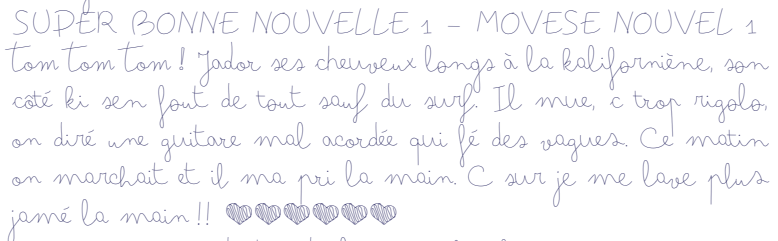 SUPÉR BONNE NOUVELLE 1 – MOVESE NOUVEL 1
Tom Tom Tom ! Jador ses cheuveux longs à la kaliforniène, son
côté ki sen fout de tout sauf du surf. Il mue, c trop rigolo,
on diré une guitare mal acordée qui fé des vagues. Ce matin
on marchait et il ma pri la main. C sur je me lave plus
jamé la main !! ♥♥♥♥♥♥